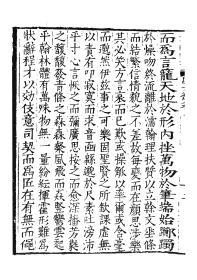 而為言籠天地於形內挫萬物於筆端始躑躅
於燥吻終流離於濡翰理扶質以立幹文垂條
而結繁信情貌之不差故每變而在顏思涉樂
其必笑方言哀而已歎或操觚以率爾或含毫
而邈然伊茲事之可樂固聖賢之所欽課虛無
以責有叩寂寞而求音函緜邈於尺素吐滂沛
乎寸心言恢之而彌廣思按之而愈深播芳蕤
之馥馥發青條之森森粲風飛而猋豎鬱雲起
乎翰林體有萬殊物無一量紛紜揮霍形難為
狀辭程才以効伎意司契而為匠在有無而僶